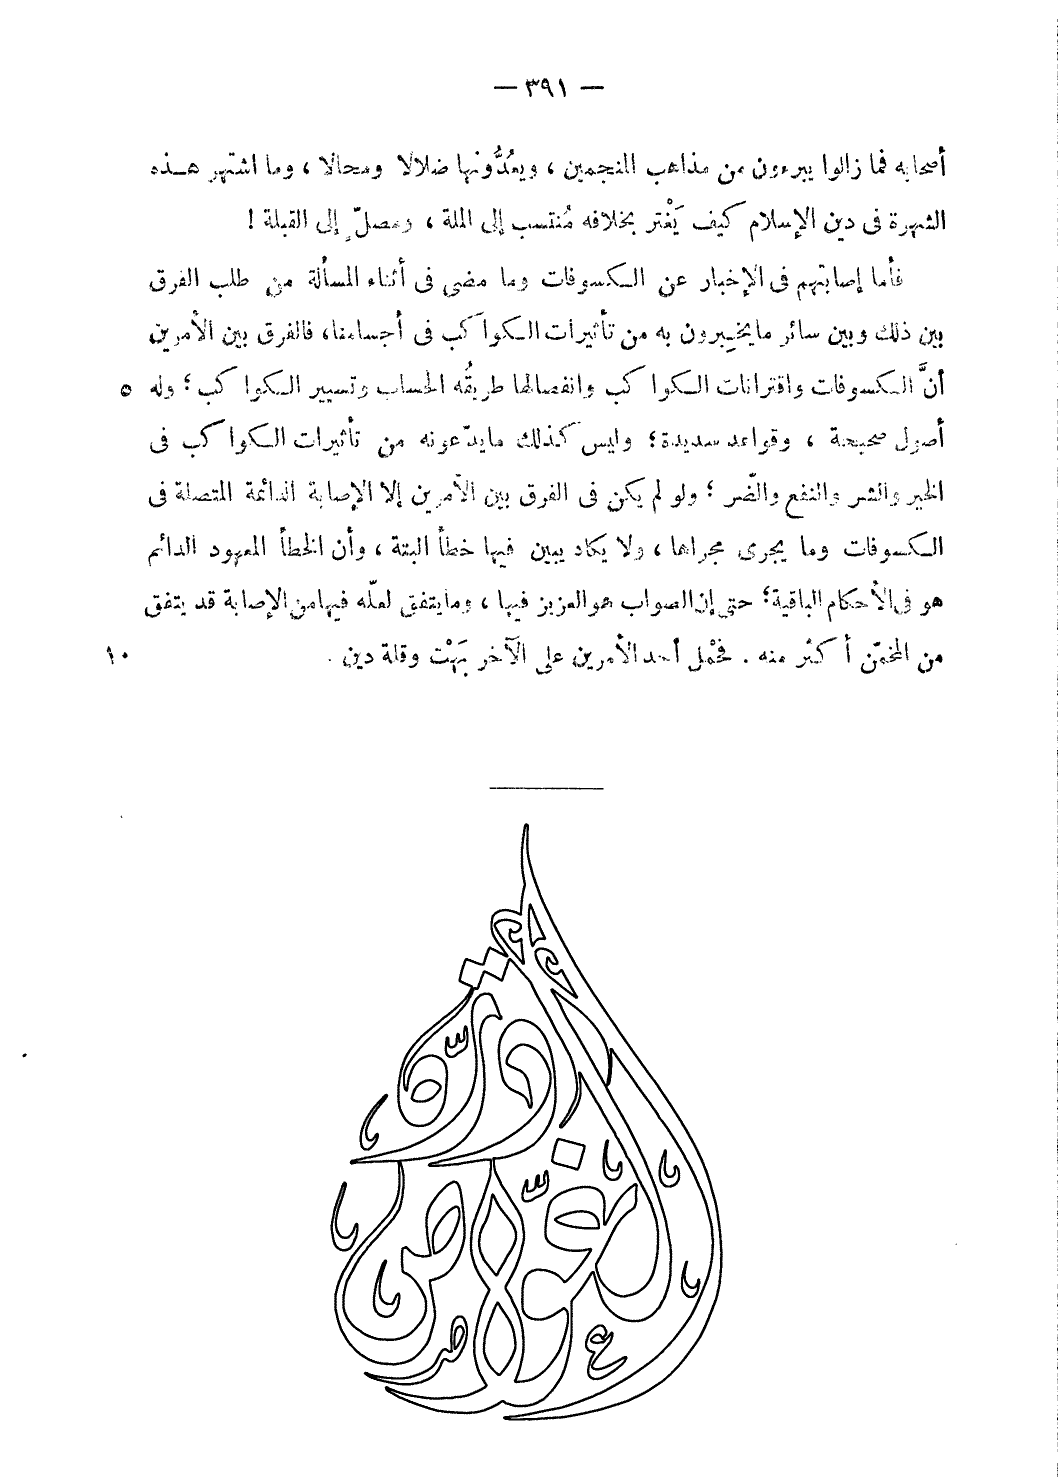 — ٣٩١ —
أصحابه فما زالوا يبرءون من مذاهب المنجمين ، ويعُدُّونها ضلالا ومحالا ، وما اشتهر هـذه
الشهرة فى دين الإسلام كيف يَغْتر بخلافه مُنتسب إلى الملة ، ومصلّ إلى القبلة !
فأما إصابتهم فى الإخبار عن الـكسوفات وما مضى فى أثناء المسألة من طلب الفرق
بين ذلك وبين سائر مايخـبرون به من تأثيرات الـكواكب فى أجسامنا، فالفرق بين الأمرين
أنَّ الـكسوفات واقترانات الـكواكب وانفصالها طريقُه الحساب وتسيير الـكواكب ؛ وله ٥
أصول صحيحة ، وقواعد سديدة؛ وليس كذلك مايدّعونه من تأثيرات الـكواكب فى
الخير والشر والنفع والضّر ؛ ولو لم يكن فى الفرق بين الأمرين إلا الإصابة الدائمة المتصلة فى
الـكسوفات وما يجرى مجراها ، ولا يكاد يبين فيها خطأ البتة ، وأن الخطأ المعهود الدائم
هو فى الأحكام الباقية؛ حتى إن الصواب هو العزيز فيها ، ومايتفق لعلّه فيها من الإصابة قد يتفق
من المخمّن أكثر منه . فحْمل أحد الأمرين على الآخر بَهَتْ وقلة دين . ١٠
درّة
الغوّاص